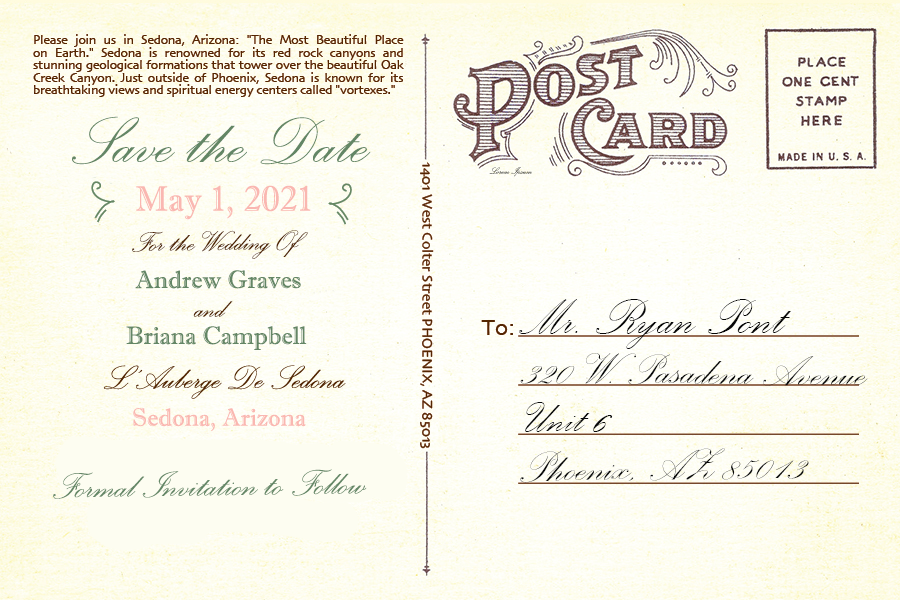 Please join us in Sedona, Arizona: "The Most Beautiful Place
on Earth." Sedona is renowned for its red rock canyons and
stunning geological formations that tower over the beautiful Oak
Creek Canyon. Just outside of Phoenix, Sedona is known for its
breathtaking views and spiritual energy centers called "vortexes."
Save the Date
May 1, 2021
For the Wedding Of
Andrew Graves
and
Briana Campbell
L'Auberge De Sedona
Sedona, Arizona
Formal Invitation to Follow
1401 West Colter Street PHOENIX, AZ 85013
POST
CARD
Lorem Ipsum
PLACE
ONE CENT
STAMP
HERE
MADE IN U. S. A.
To: Mr. Ryan Pont
320 W. Pasadena Avenue
Unit 6
Phoenix, AZ 85013